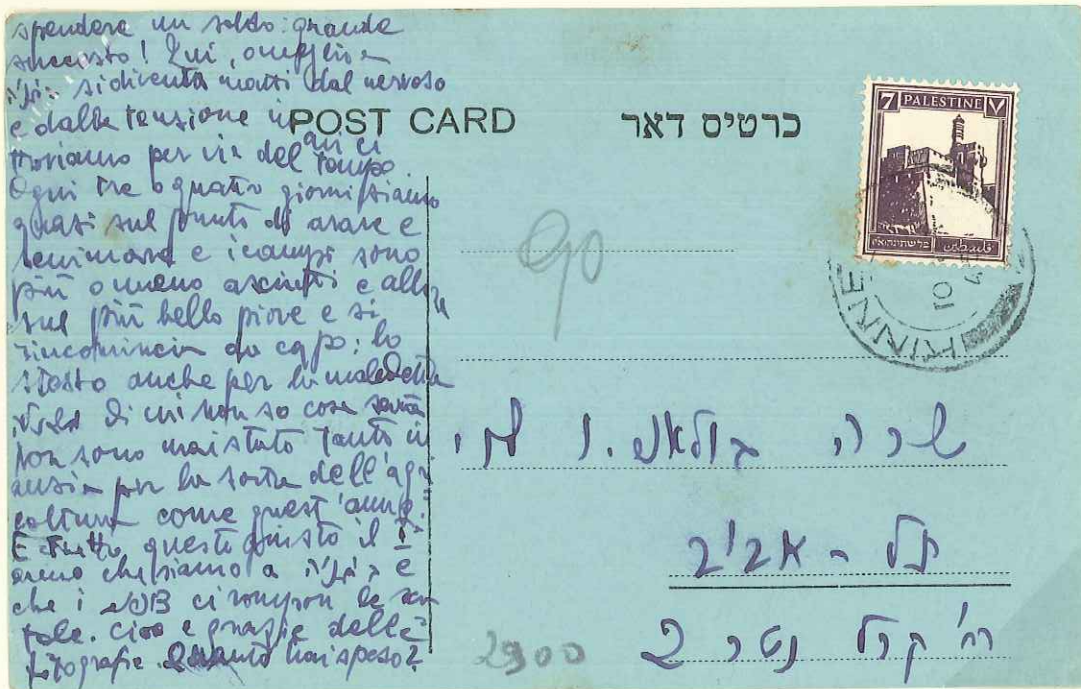 spendere un soldo: grande
successo! Qui, o meglio a
si diventa matti dal nervoso
e dalla tensione in cui ci
troviamo per via del tempo.
Ogni tre o quattro giorni siamo
quasi sul punto di arare e
seminare e i campi sono
più o meno asciutti e allora
sul più bello piove e si
rincomincia da capo: lo
stesso anche per la maledetta
di cui non so cosa sarà
Non sono mai stato tanto in
ansia per la sorte dell'agri
coltura come quest'anno.
E tutto questo giusto il I°
anno che siamo a e
che i ci rompon le sca
tole. Ciao e grazie delle
fotografie. Quanto hai speso?
POST CARD
כרטיס דאר
7 PALESTINE ٧
فلسطين
פלשתינה א״י
KINNE
10
90
שרה
תל - אביב
רח' קרל נטר 2
2900